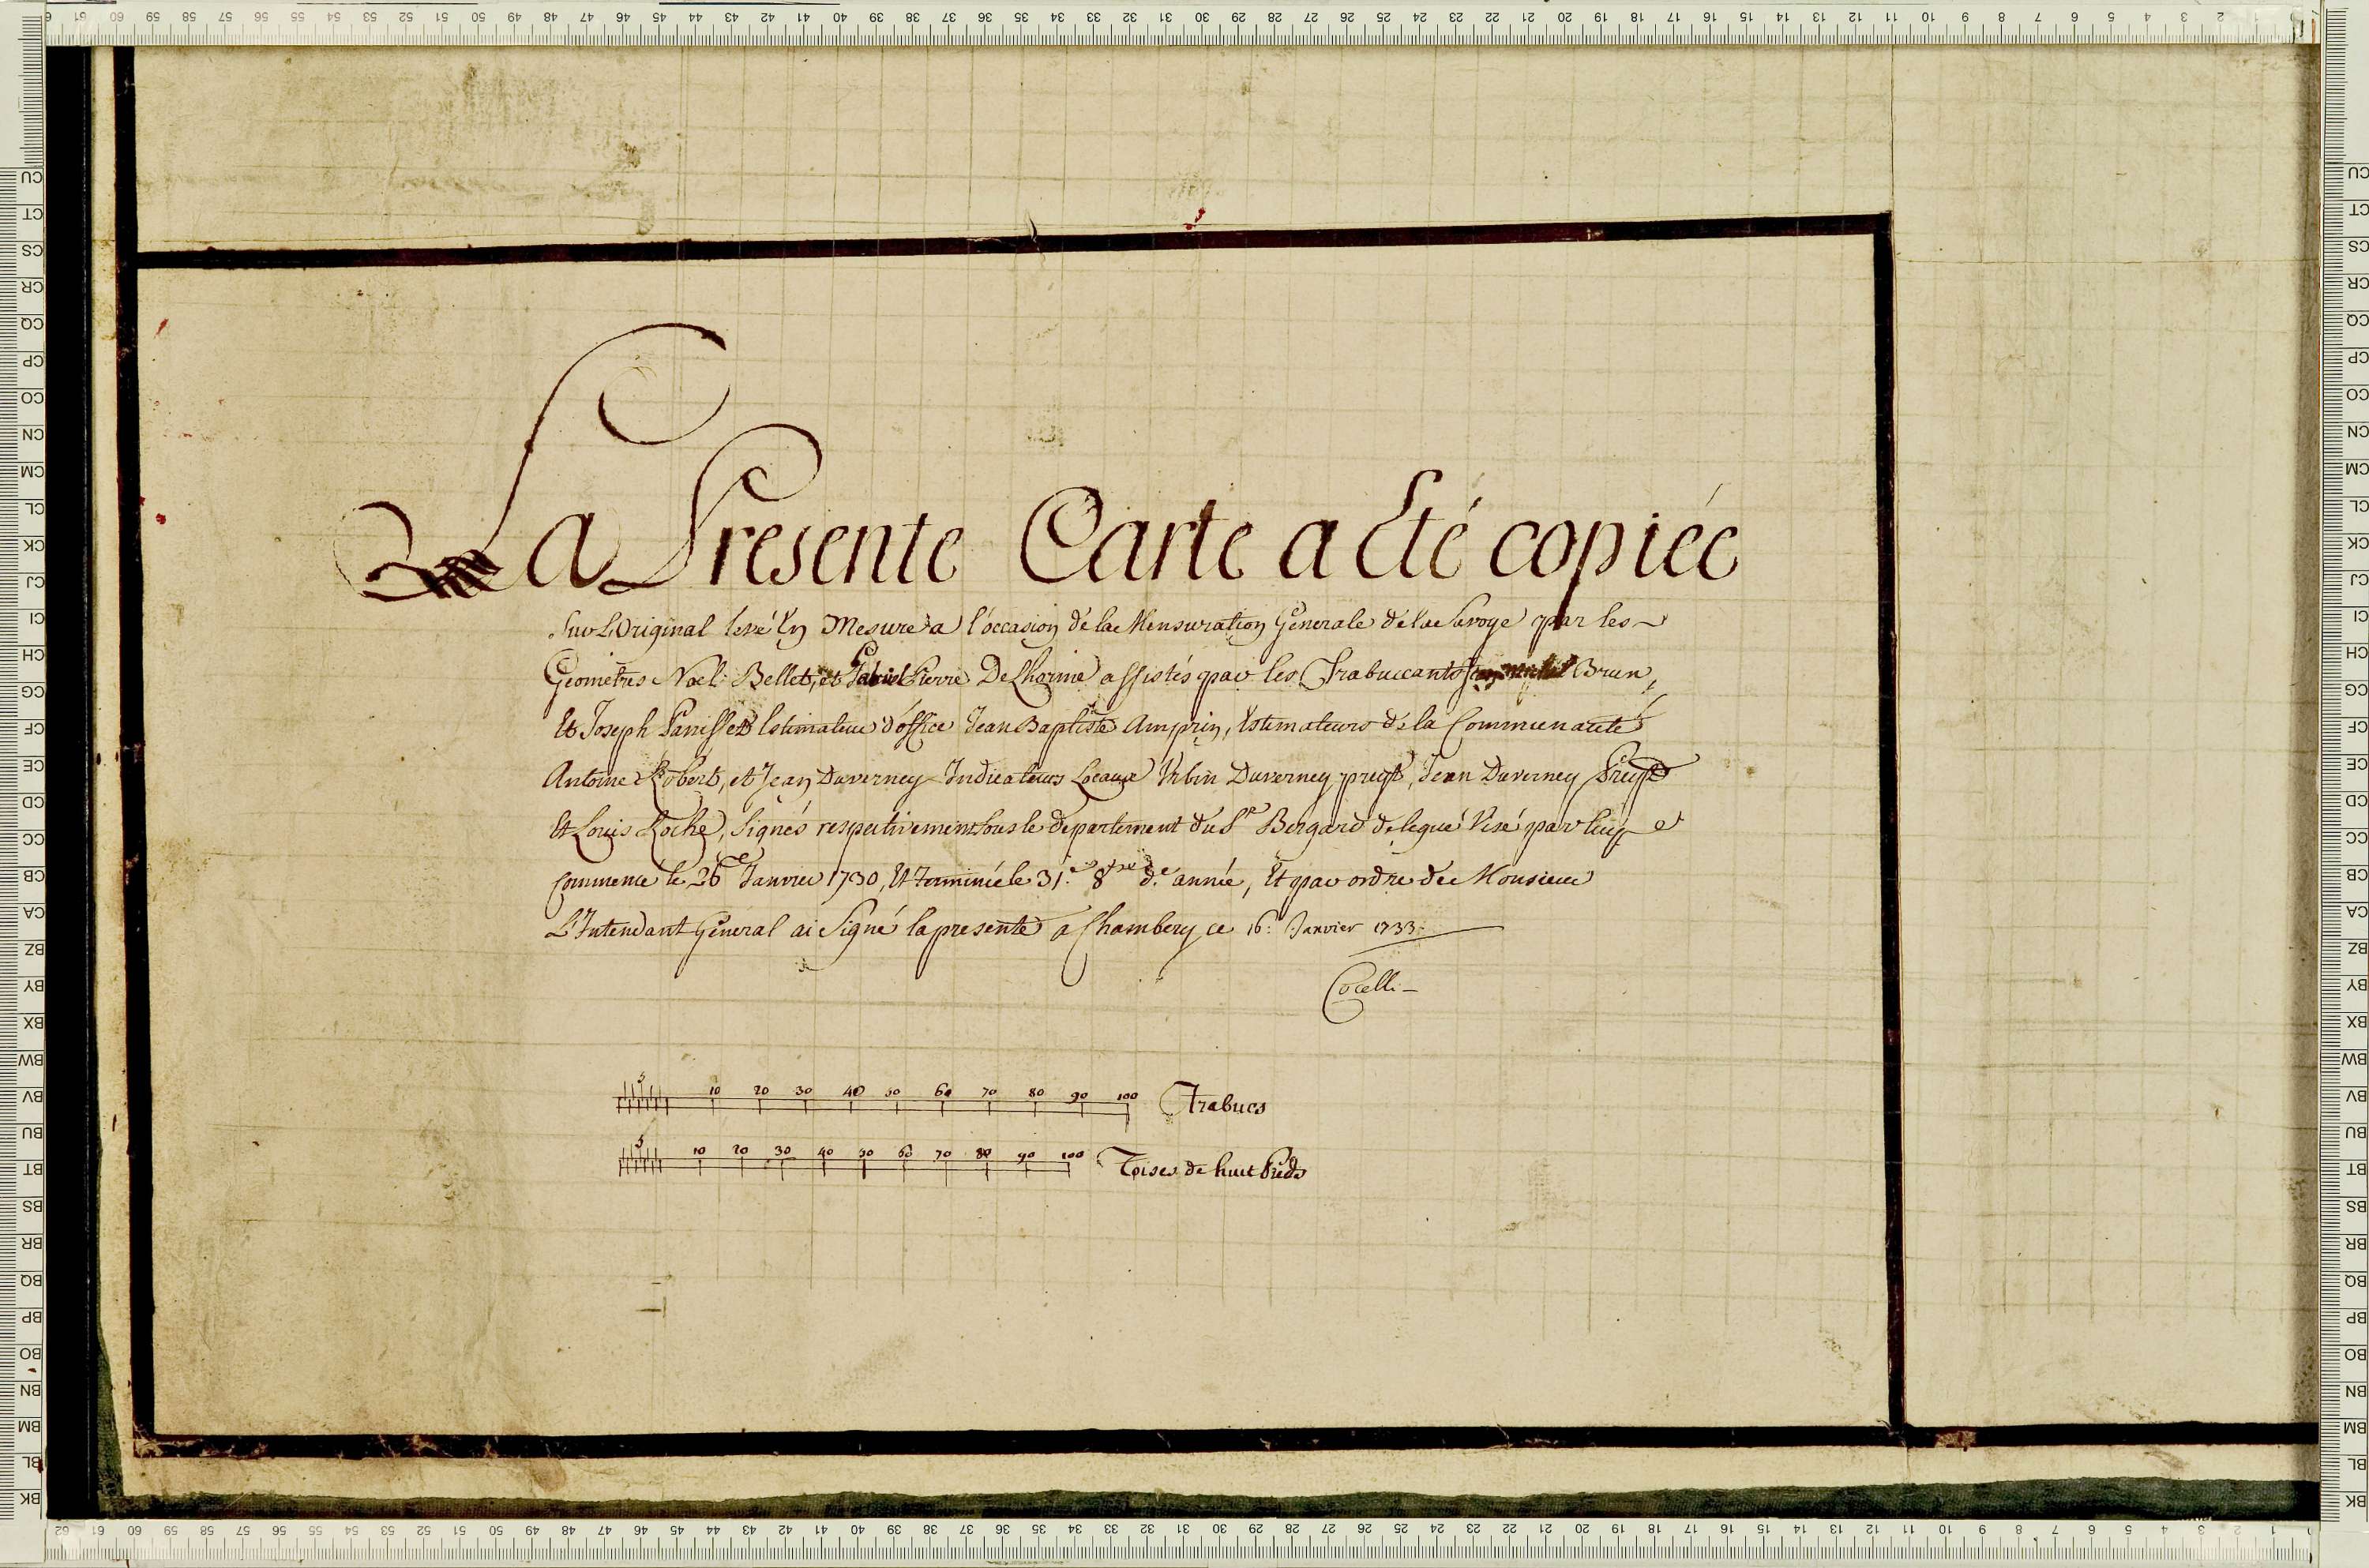 La Presente Carte a Eté copiée
Sur L'Original levé En Mesure a l'occasion de la Mensuration Generale de la Savoye par les
Geometres Noel Bellet, et Pierre Delhorme assistés par les Trabuccants Brun,
Et Joseph Panisset Estimateur d'office Jean Baptiste Amprin, Estimateurs de la Communauté
Antoine Robert, et Jean Duverney Indicateurs Locaux Urbin Duverney Jean Duverney
Et Louis Roche, Signés respectivement sous le departement du Sr Bergard delegué Visé par luy
Commencé le 26e Janvier 1730, Et Terminée le 31e 8bre de année, Et par ordre de Monsieur
L'Intendant Général ai Signé la presente a Chambery ce 16: Janvier 1733.
Cocelli
5 10 20 30 40 50 60 70 80 90 100 Trabucs
5 10 20 30 40 50 60 70 80 90 100 Toises de huit Pieds